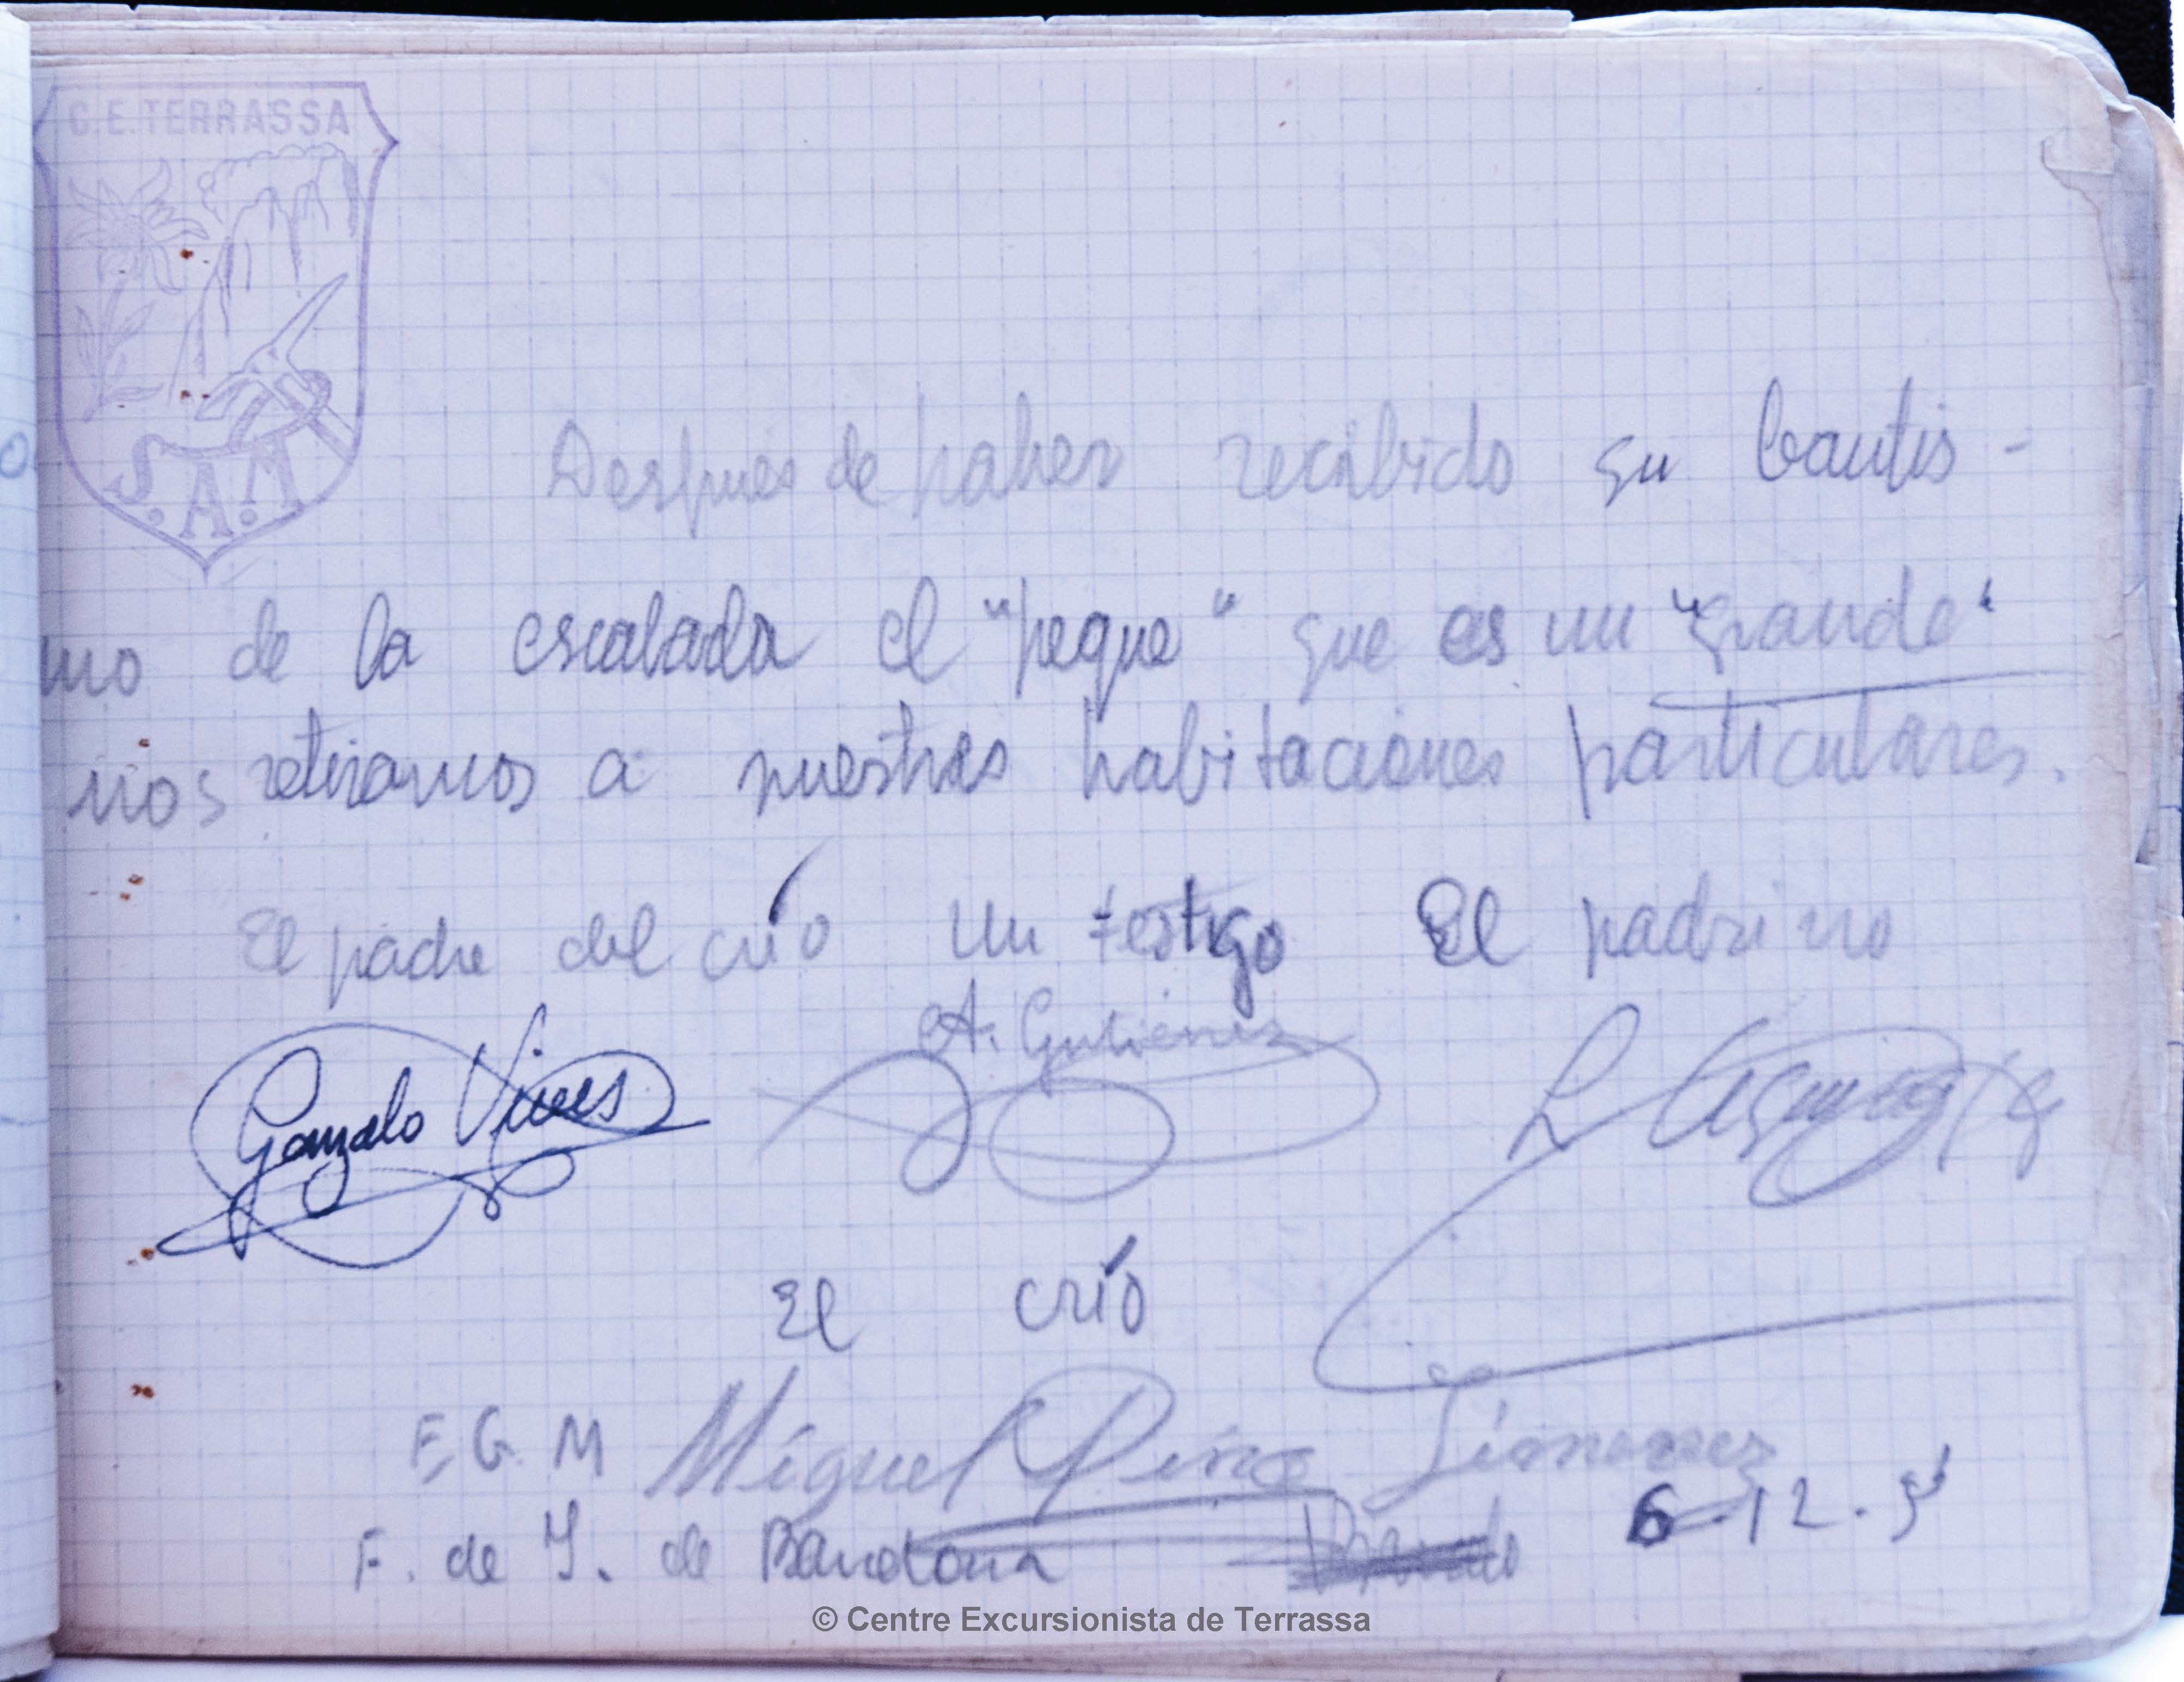 C.E.TERRASSA
S.A.M
Despues de haber recibido su bautis-
mo de la escalada el "peque" que es un "grande"
nos retiramos a nuestras habitaciones particulares.
El padre del crío Un testigo El padrino
Gonzalo Vives A. Gutierrez
El crío
F. G. M Miguel Jimenez
F. de J. de Bandona 6-12-
© Centre Excursionista de Terrassa